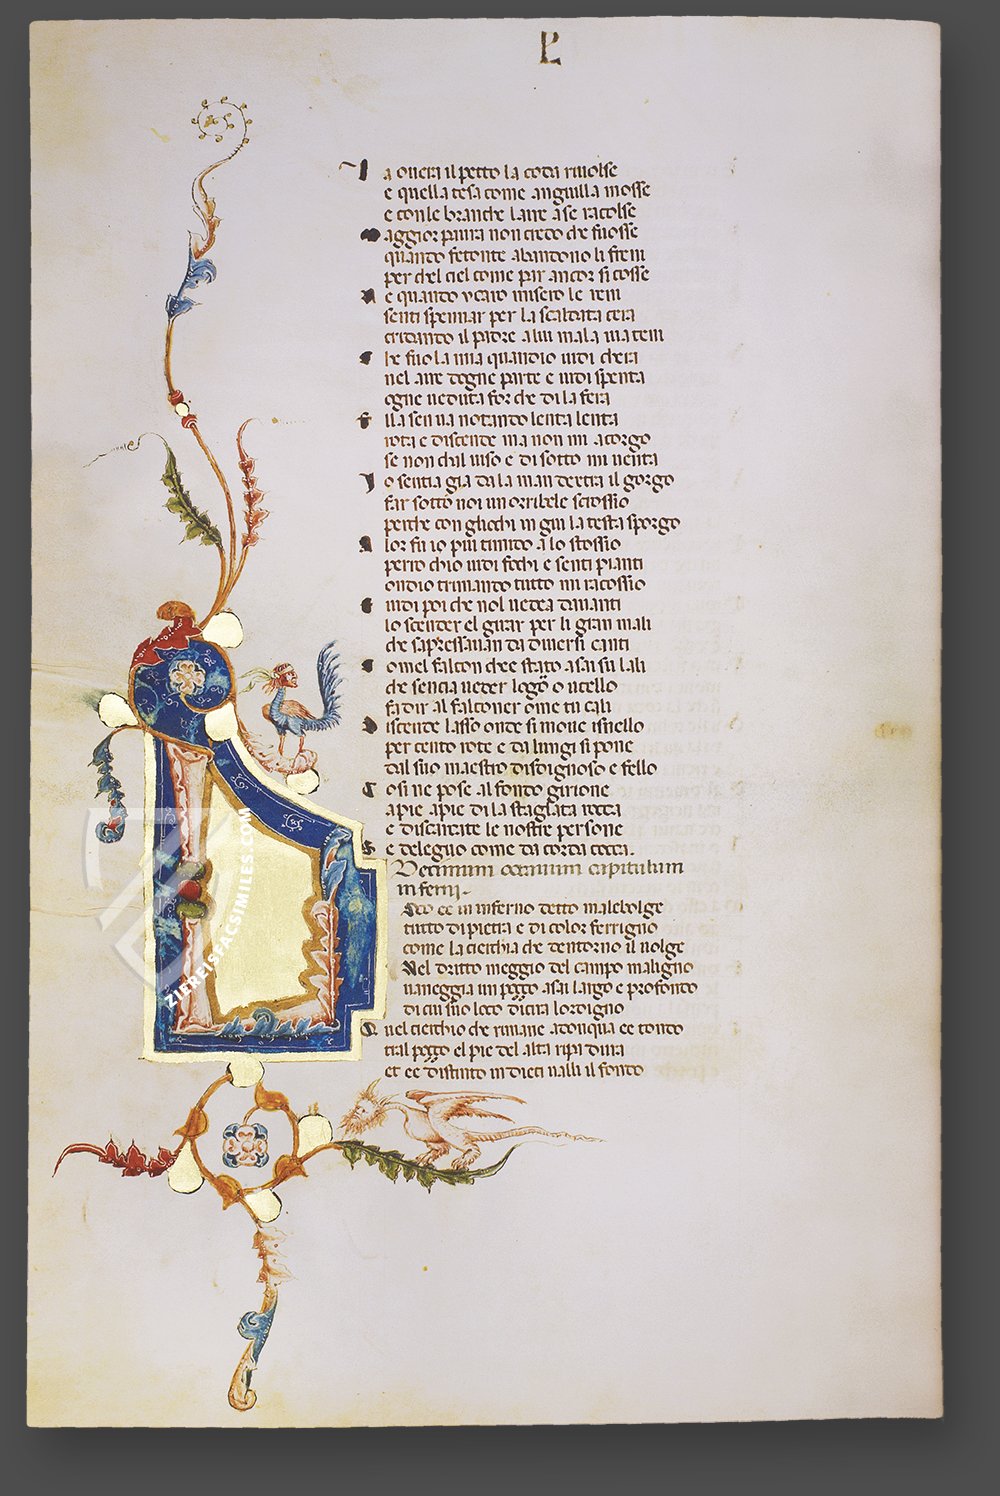 L
La ouera il petto la coda riuolse
e quella tesa come anguilla mosse
e con le branche laire a se racolse
Maggior paura non credo che fuosse
quando fetonte abandono li freni
per chel ciel come par ancor si cosse
Ne quando ycaro misero le reni
senti spennar per la scaldata cera
cridando il padre a lui mala via teni
Che fu la mia quando io uidi chera
nel aire dogne parte e uidi spenta
ogne ueduta for che di la fera
Ella sen ua notando lenta lenta
rota e discende ma non mi acorgo
se non chal uiso e di sotto mi uenta
Io sentia gia da la man dextra il gorgo
far sotto noi un orribele scrossio
perche con gliochi in giu la testa sporgo
Alor fu io piu timido a lo stossio
pero chio uidi fochi e senti pianti
ondio trimando tutto mi racossio
E uidi poi che nol uedea dauanti
lo scender el girar per li gran mali
che sapressauan da diuersi canti
Comel falcon chee stato asai su lali
che sencia ueder logoro o ucello
fa dir al falconer ome tu cali
Discende lasso onde si moue isnello
per cento rote e da lungi si pone
dal suo maestro disdignoso e fello
Cosi ne pose al fondo girione
a pie a pie di la stagliata rocca
e discarcate le nostre persone
Se delegno come da corda cocca.
Decimum octauum capitulum
inferni.
Loco ee in inferno detto malebolge
tutto di pietra e di color ferrigno
come la cierchia che dentorno il uolge
Nel dritto meggio del campo maligno
uaneggia un poço asai largo e profondo
di cui suo loco dicira lordigno
Quel cierchio che rimane adonqua ee tondo
tral poço el pie del alta ripa dura
et ee distinto in dieci ualli il fondo
ZIEREISFACSIMILES.COM